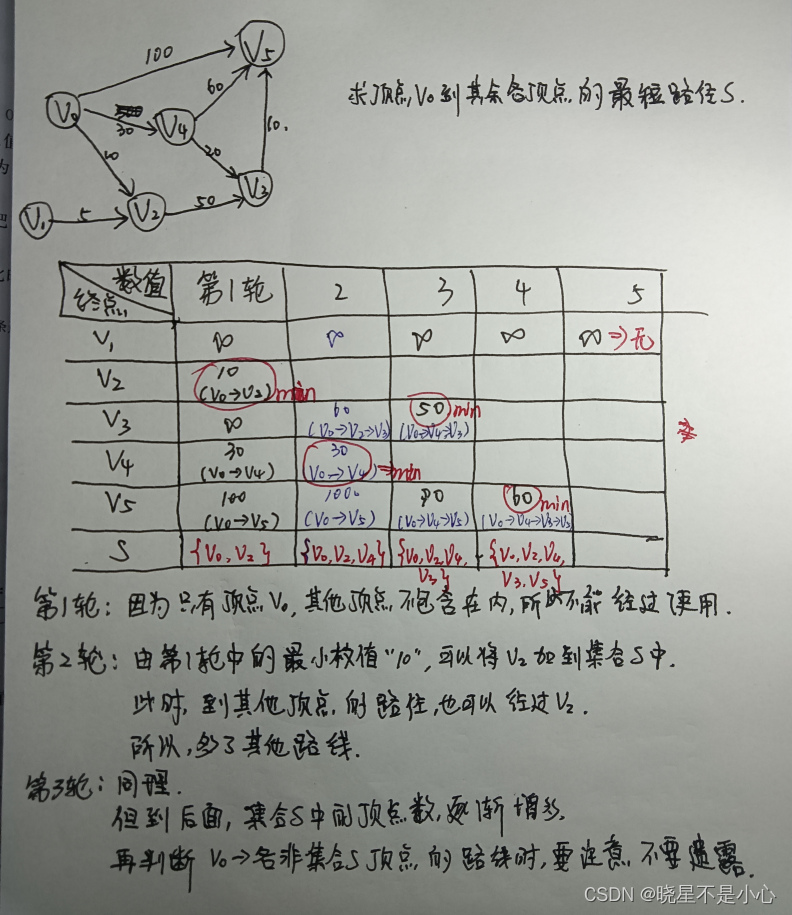 100
V5
60
求顶点V0到其余各顶点的最短路径S.
V0
30
V4
10
20
60.
V3
V1
5
V2
50
数值
终点
第1轮
2
3
4
5
V1
∞
∞
∞
∞
∞⇒无
V2
10
(V0→V2)
min
V3
∞
60
(V0→V2→V3)
50
min
(V0→V4→V3)
V4
30
(V0→V4)
30
V0→V4)
min
V5
100
(V0→V5)
100
(V0→V5)
90
(V0→V4→V5)
60
min
(V0→V4→V3→V5)
S
{V0,V2}
{V0,V2,V4}
{V0,V2,V4,
V3}
{V0,V2,V4,
V3,V5}
第1轮:因为只有顶点V0,其他顶点不包含在内,所以不能经过使用.
第2轮:由第1轮中的最小权值"10",可以将V2加到集合S中.
此时,到其他顶点的路径,也可以经过V2.
所以,多了其他路线.
第3轮:同理.
但到后面,集合S中的顶点数,逐渐增多.
再判断V0→各非集合S顶点的路线时,要注意不要遗露.
CSDN @晓星不是小心